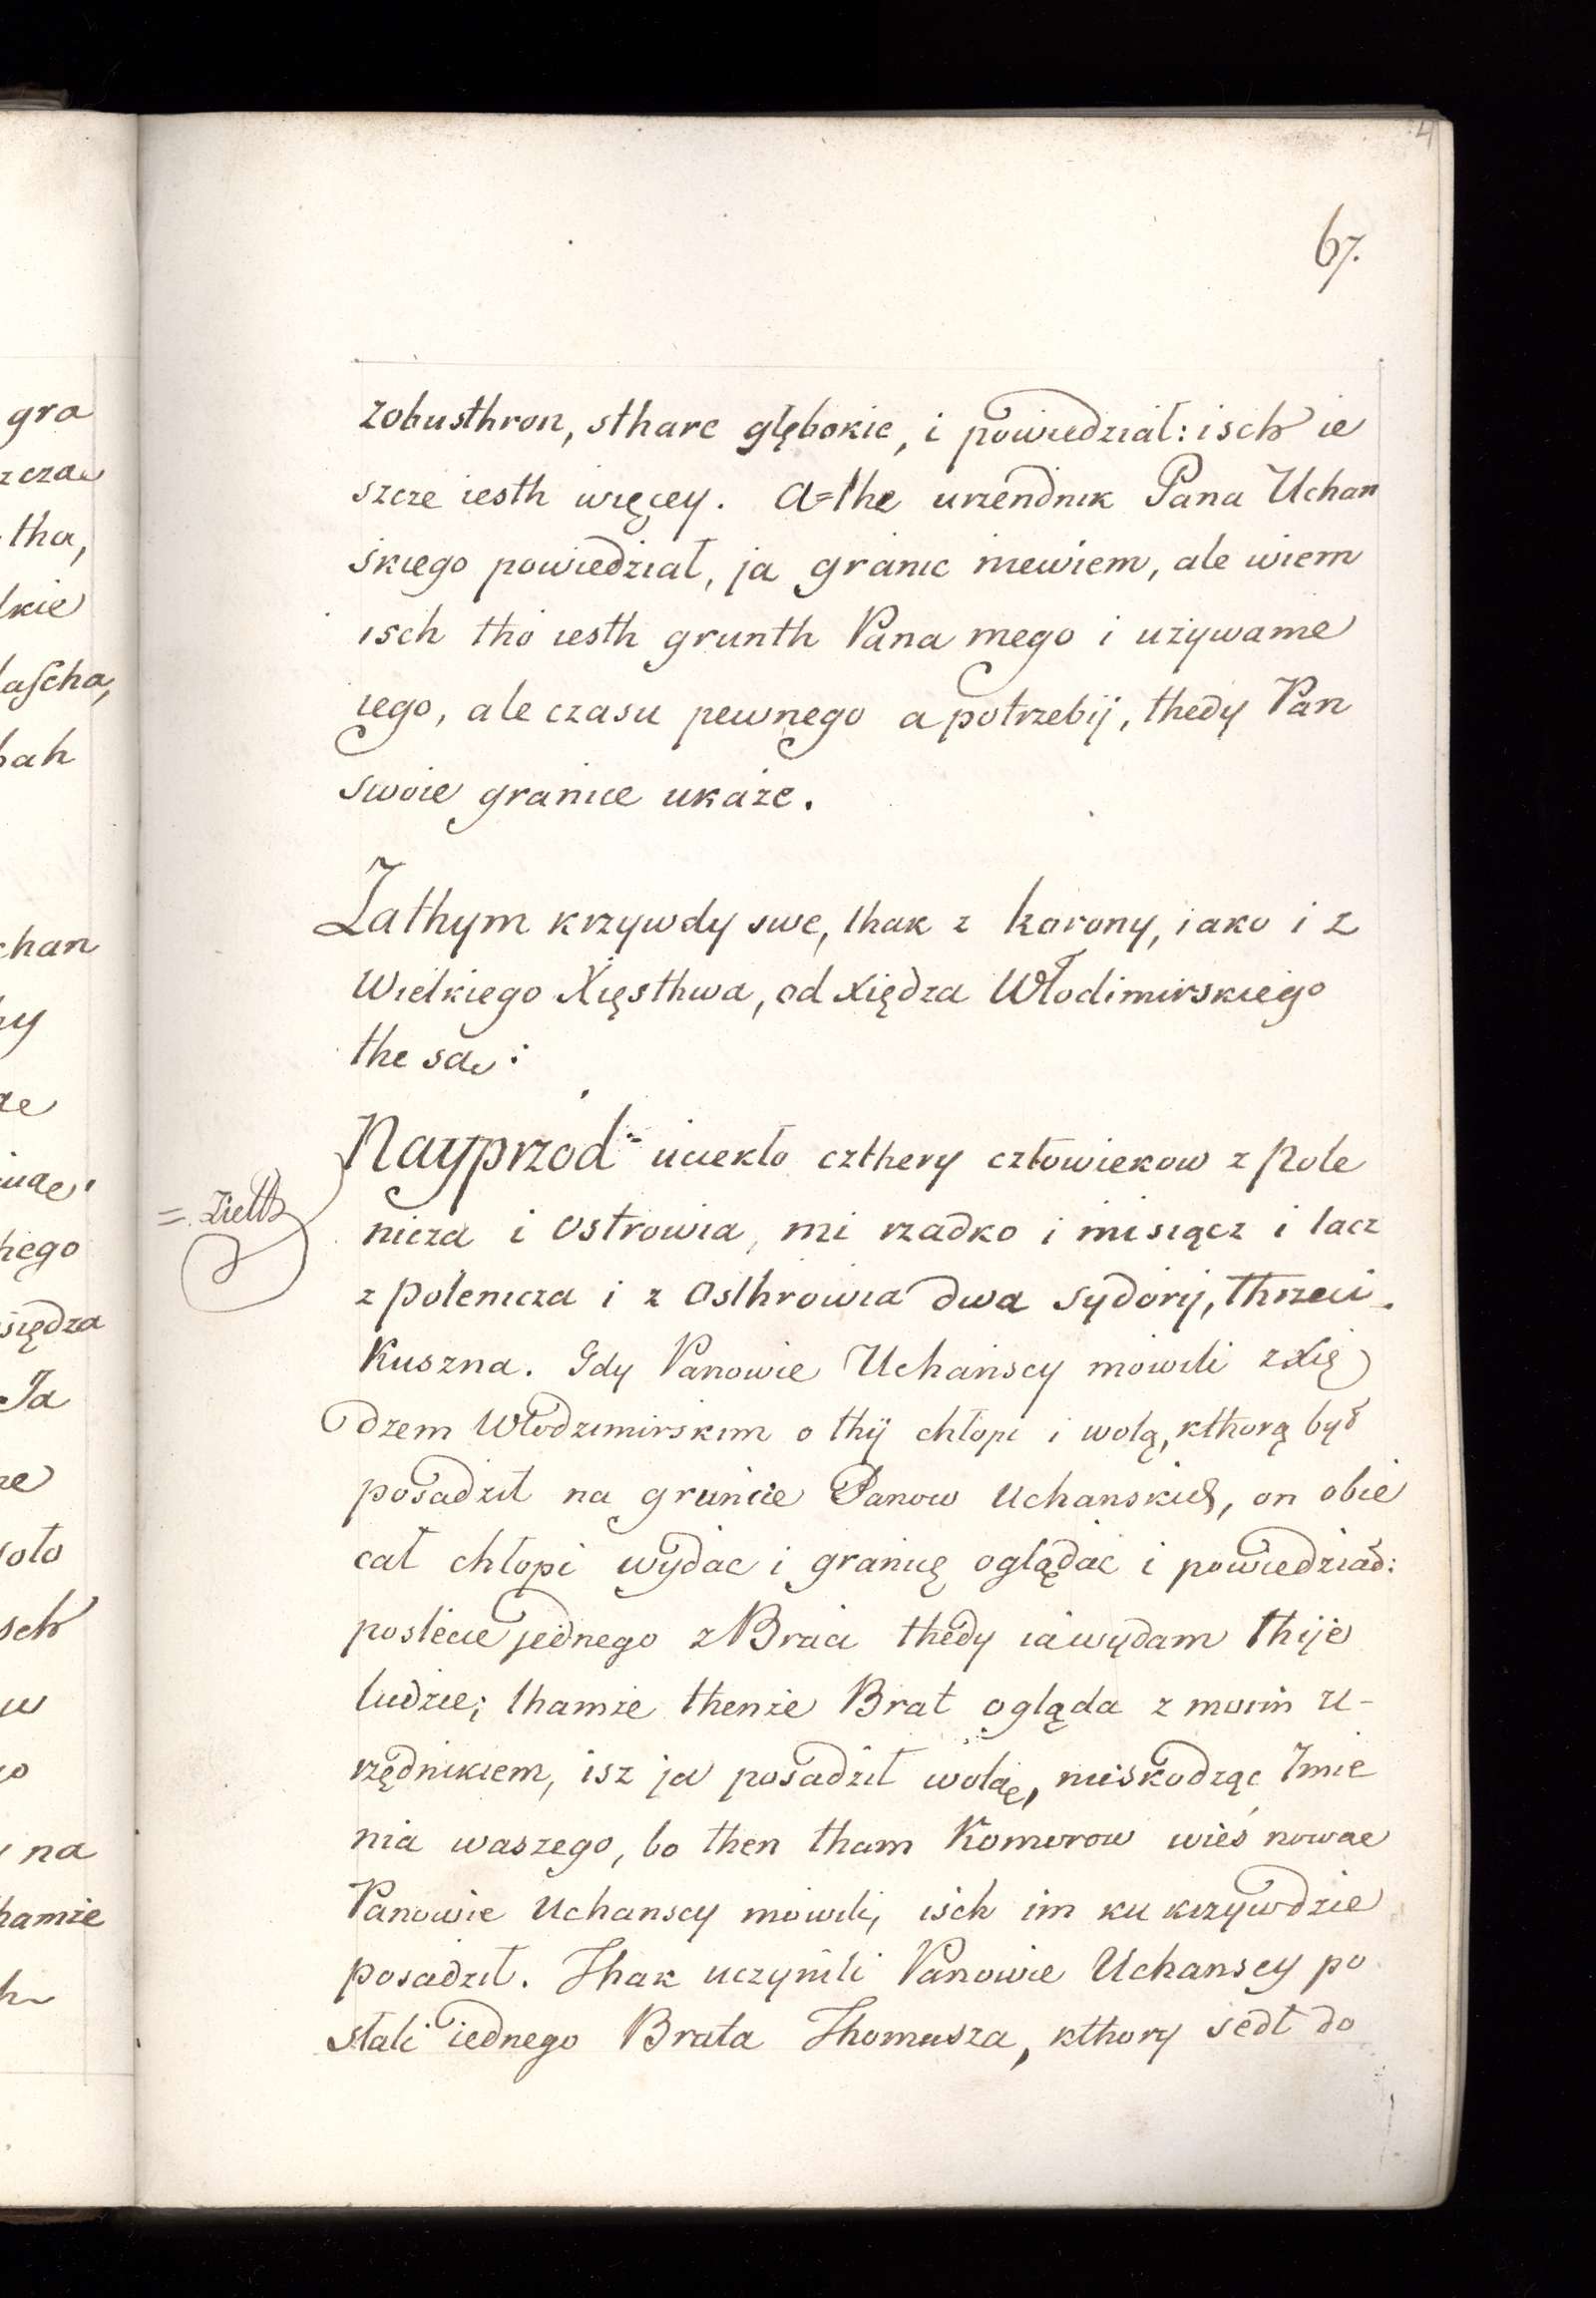 4
67.
zobusthron, sthare głębokie, i powiedział: isch ie
szcze iesth więcey. A=the urzendnik Pana Uchan
skiego powiedział, ja granic niewiem, ale wiem
isch tho iesth grunth Pana mego i używame
iego, ale czasu pewnego a potrzebij, thedy Pan
swoie granice ukaże.
Zathym krzywdy swe, thak z korony, iako i z
Wielkiego Xięsthwa, od xiędza Włodimirskiego
the są:
Nayprzod = uciekło czthery człowiekow z Pole
nicza i Ostrowia, mi rzadko i misiącz i lacz
z polenicza i z Osthrowia dwa sydorij, Thrzeci
Kuszna. Gdy Panowie Uchańscy mowili z Xię
dzem Włodzimirskim o thÿ chłopi i wolą, kthorą był
posadził na gruncie Panow Uchanskich, on obie
cał chłopi wydac i granicę oglądać i powiedział:
poslecie jednego z Braci thedy ia wydam thije
ludzie; thamże thenże Brat ogląda z moim u-
rzędnikiem, isz ja posadził wolą, nieskodząc Imie
nia waszego, bo then tham Komorow wieś nowae
Panowie Uchanscy mowili, isch im ku krzywdzie
posadził. Thak uczynili Panowie Uchanscy po
słali iednego Brata Thomusza, kthory sedł do